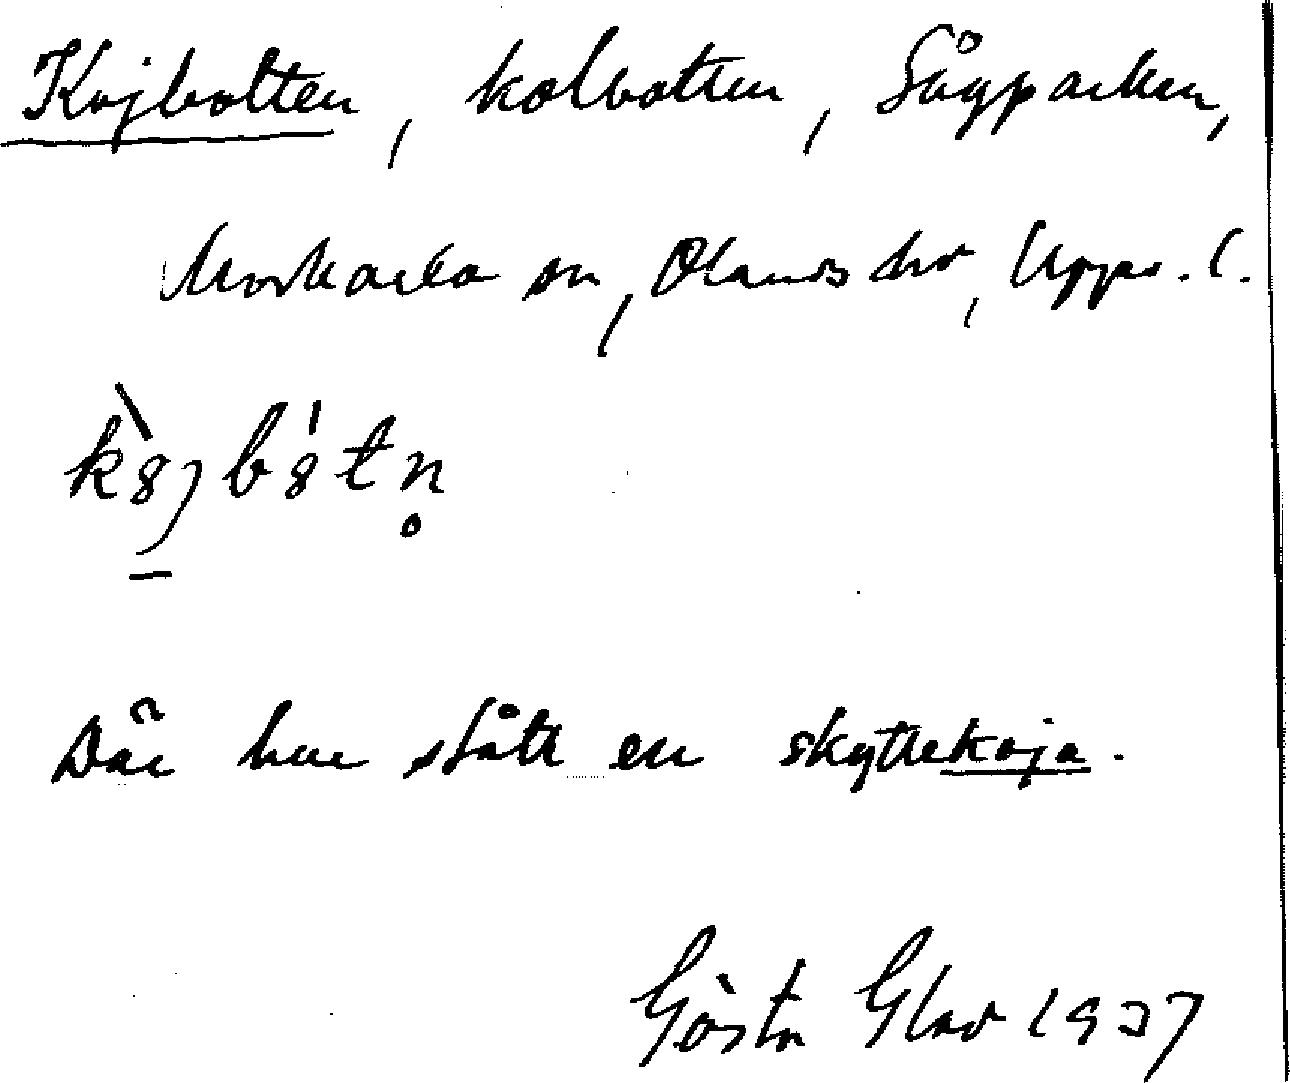 Kojbotten, kolbotten, Sågparken,
Morkarla sn, Olands hd, Upps. l.
kò̱jbo̍tn̥
Där har stått en skyttekoja.
Gösta Glad 1937